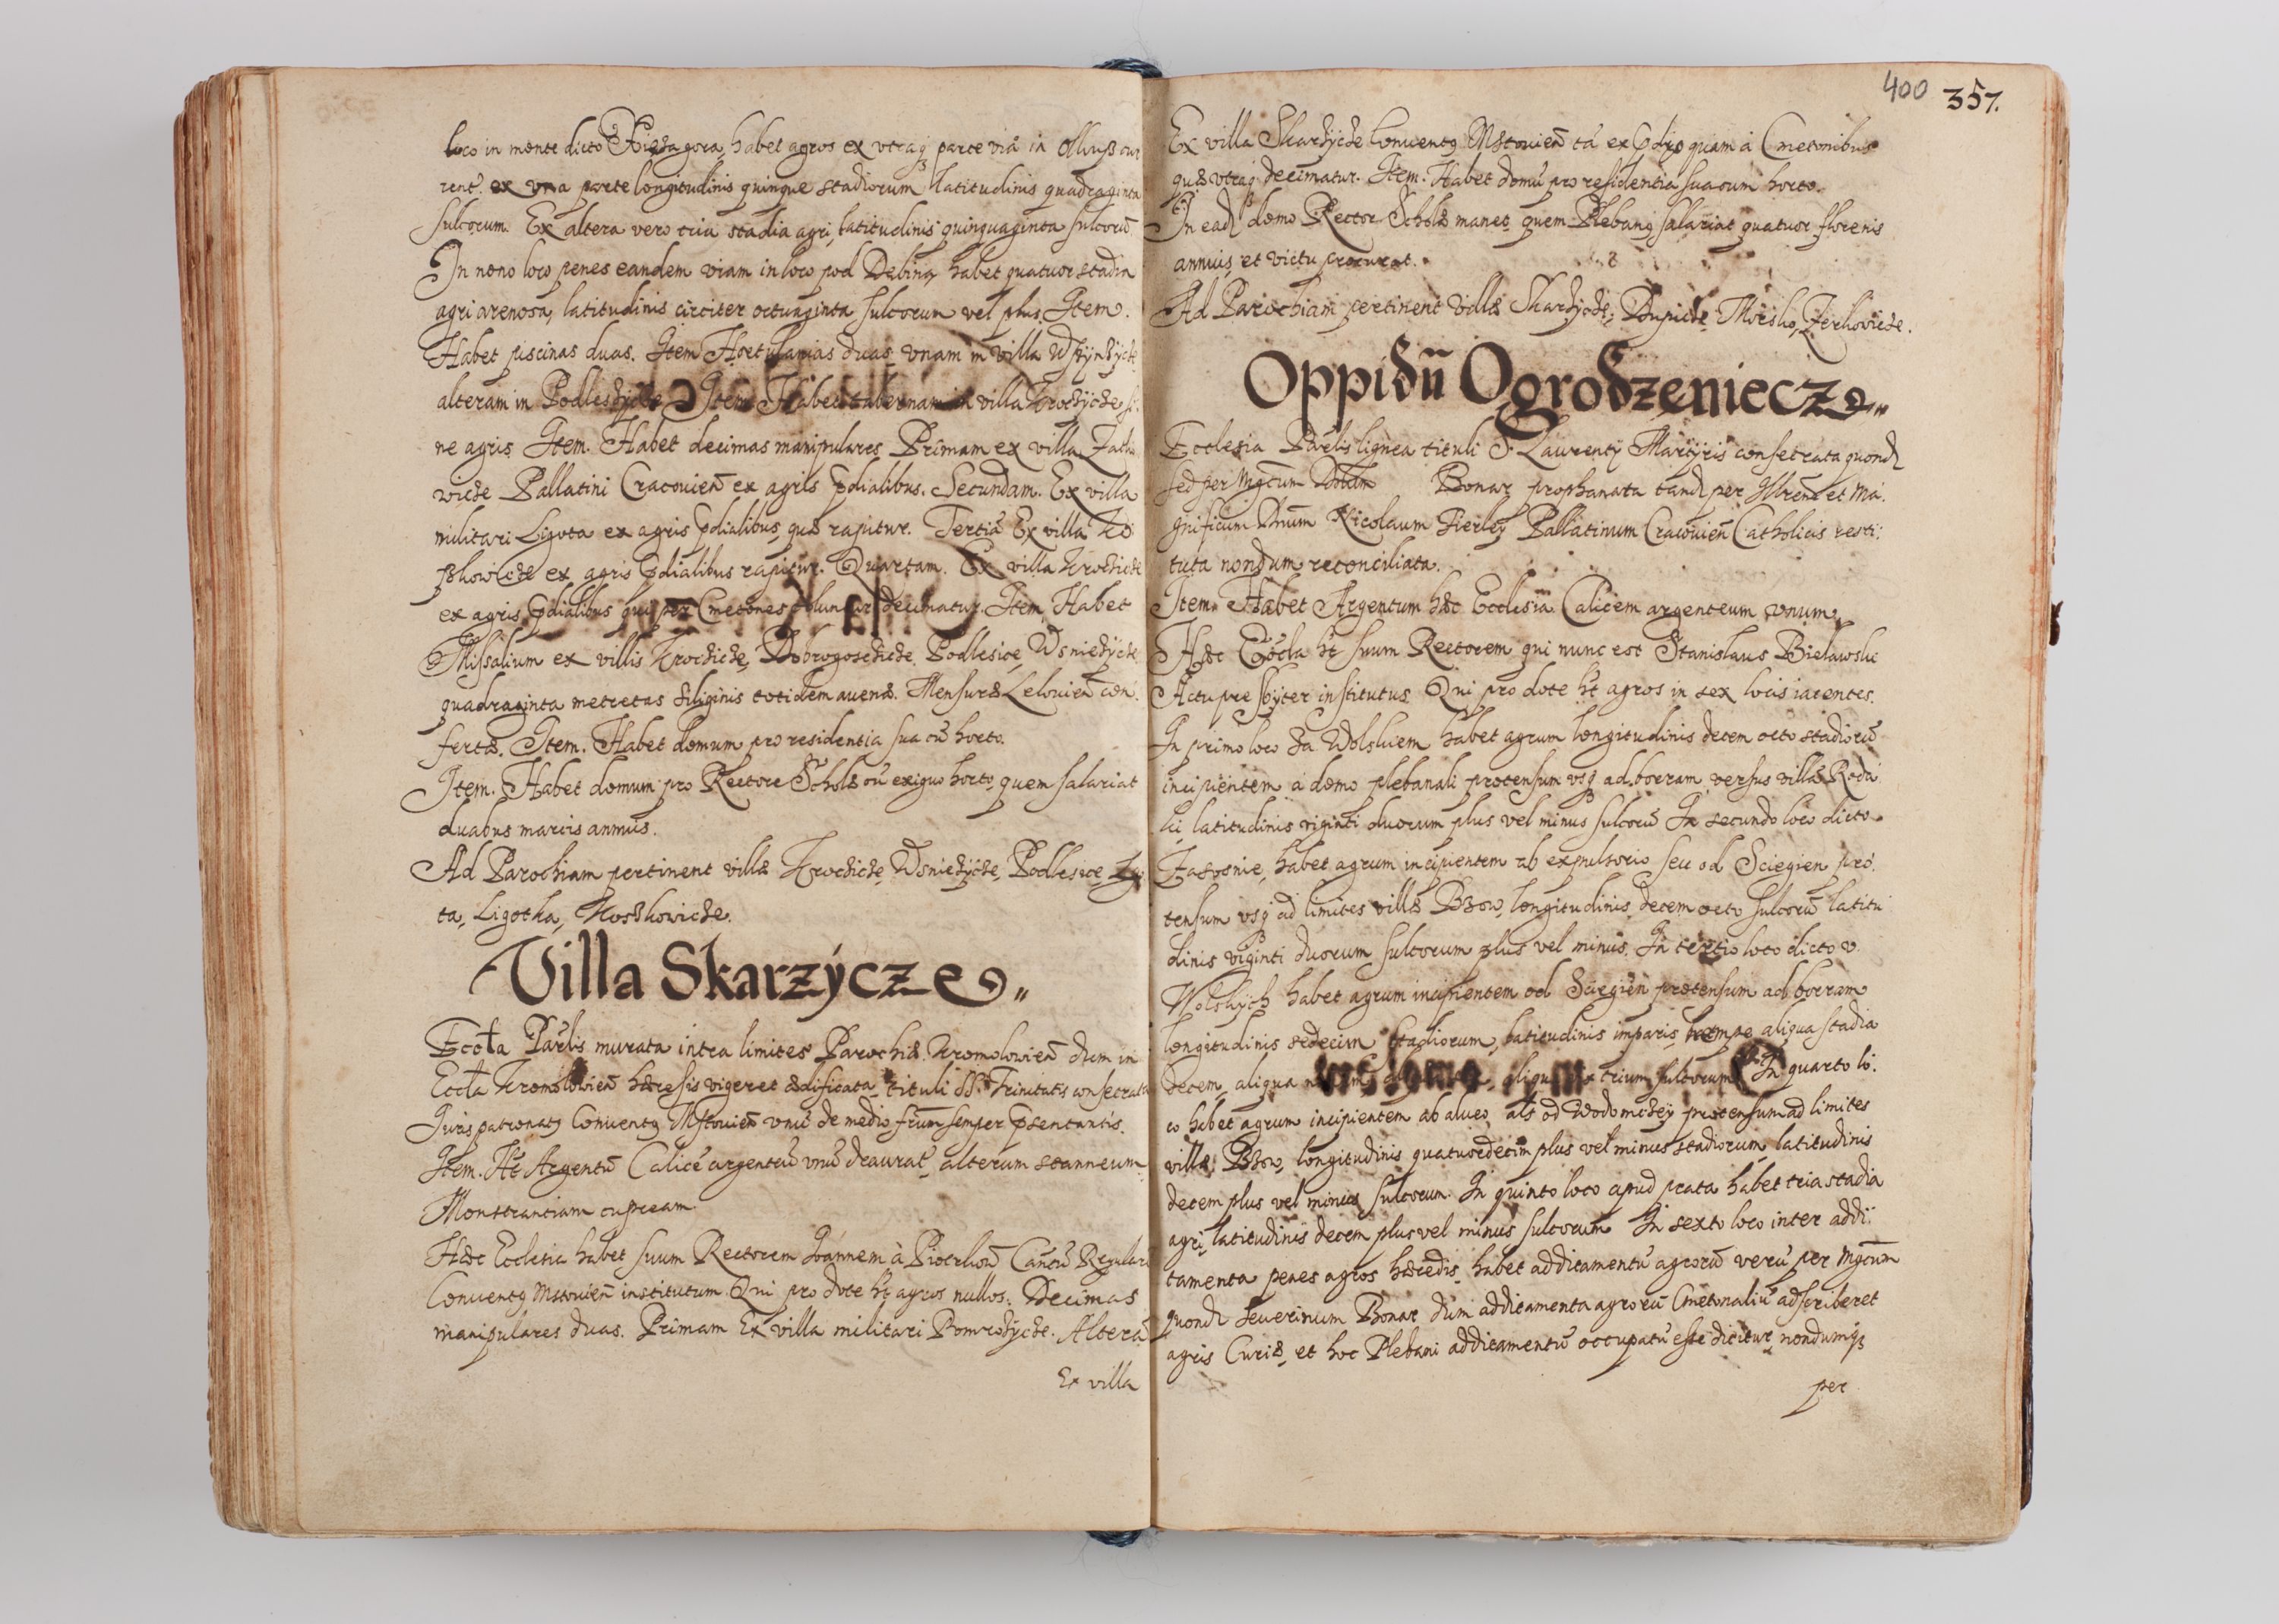 loco in monte dicto Xięża gora, habet agros ex vtraq parte viæ in Olkusz cur
rent. ex vna parte longitudinis quinque stadiorum latitudinis quadraginta
sulcorum. Ex altera vero tria stadia agri, latitudinis quinquaginta sulcorū
In nono loco penes eandem viam in loco pod Debiną habet quatuor stadia
agri arenosa, latitudinis circiter octuaginta sulcorum vel plus. Item.
Habet piscinas duas. Item Hortulanias duas vnam in villa
alteram in Podlesżycze Item Habet tabernam in villa Kroczycze si
ne agris Item. Habet decimas manipulares Primam ex villa
wicze Pallatini Cracouień ex agris p̄dialibus. Secundam. Ex villa
militari Ligota ex agris p̄dialibus, quæ rapitur. Tertiā Ex villa Ko
szkowicze ex agris p̄dialibus rapitur. Quartam. Ex villa Kroczicze
ex agris p̄dialibus qui per Cmetones coluntur decimatur. Item Habet
Missalium ex villis Kroczicze, Dobrogoszczicze Podlesice,
quadraginta metretas siliginis totidem auenæ. Mensuræ Lelouień con
fertæ. Item. Habet domum pro residentia sua cū horto.
Item. Habet domum pro Rectore Scholæ cū exiguo horto, quem salariat
duabus marcis annuis.
Ad Parochiam pertinent villæ Kroczicze, Podlesice
ta, Ligotka, Koszkowicze.
Villa Skarzÿcze
Eccła Parlis murata intra limites Parochiæ Kromolowień dum in
Eccła Kromolowień hæresis vigeret ædificata tituli SS. Trinitatis consecrata
Juris patronatꝯ Conuentꝯ Mstouień vnū de medio frūm semper p̄sentantis.
Item. Ht Argentū Calicē argenteū vnū deaurat. alterum stanneum.
Monstrantiam cupream
Hæc Ecclesia habet suum Rectorem Joannem à Piotrkow Canōū Regulari
Conuentꝯ Mstouień institutum. Qui pro dote ht agros nullos. Decimas
manipulares duas. Primam Ex villa militari Pomrożycze. Alterā
Ex villa
400 357.
Ex villa Skarżycze Conuentꝯ Mstouień tā ex p̄dijs quam à Cmetonibus
quæ vtraq decimatur. Item. Habet domū pro residentia sua cum horto.
In eadē domo Rector Scholæ manet quem Plebanꝯ salariat quatuor florenis
annuis et victu procurat.
Ad Parochiam pertinent villæ Skarżycze, Morsko, Żerkowicze.
Oppidū Ogrodzeniecz
Ecclesia Parlis lignea tituli S. Laurentÿ Martÿris consecrata quond
sed per Mgcum Dnūm Bonar prophanata tand per Illrem et Ma
gnificum Dnūm Nicolaum Firleÿ Pallatinum Cracouień Catholicis resti
tuta nondum reconciliata.
Item. Habet Argentum hæc Ecclesia Calicem argenteum vnum.
Hæc Eccła ht suum Rectorem qui nunc est Stanislaus Bielawski
Actu presbÿter institutus Qui pro dote ht agros in sex locis iacentes.
In primo loco za Wolskiem habet agrum longitudinis decem octo stadiorū
incipientem à domo plebanali protensum vsq ad boram versus villā Roda
ki latitudinis viginti duorum plus vel minus sulcorū In secundo loco dicto
habet agrum incipientem ab expulsorio seu od Sciegien pro
tensum vsq ad limites villæ Bzow, longitudinis decem octo sulcorū latitu
dinis viginti duorum sulcorum plus vel minus. In tertio loco dicto v
Wolskich habet agrum incipientem od Sciegien protensum ad boram
longitudinis sedecim stadiorum, latitudinis imparis nempe aliqua stadia
decem, aliqua aliqua trium sulcorum In quarto lo
co habet agrum incipientem ab alueo als od protensum ad limites
villæ Bzow, longitudinis quatuordecim plus vel minus stadiorum, latitudinis
decem plus vel minus sulcorum. In quinto loco apud prata habet tria stadia
agri, latitudinis decem plus vel minus sulcorum In sexto loco inter addi
tamenta penes agros hæredis habet additamentū agrorū verū per Mgcum
quond Seuerinum Bonar dum additamenta agrorū Cmetonaliū adscriberet
agris Curiæ, et hoc Plebani additamentū occupatū esse dicitur, nondumq
per